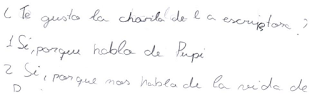 ¿Te gusta la charla de la escriptora?
1 Sí, porque habla de Pupi
2 Sí, porque nos habla de la vida de